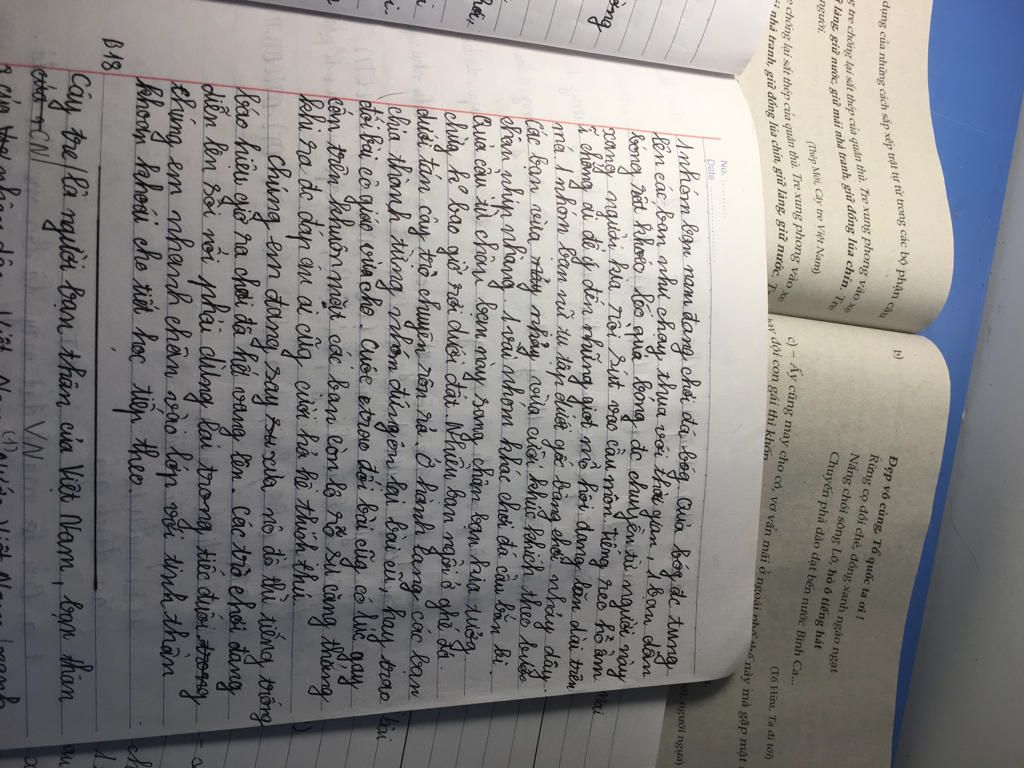 No.
Date
1 nhóm bạn nam đang chơi đá bóng. Quả bóng đc tưng
lên các bạn như chạy thua với thời gian, 1 bạn dẫn
bóng rất khoéo léo quả bóng đc chuyền từ người này
sang người kia rồi sút vào cầu môn. Tiếng reo hò ầm
ĩ chẳng ai để ý đến những giọt mồ hôi đang lăn dài trên
má. 1 nhóm bạn nữ tụ tập dưới gố bàng chơi nhảy dây.
các bạn vừa nhảy vừa cười khúc khích theo bước
chân nhịp nhàng. 1 vài nhóm khác chơi đá cầu bắn bi.
Quả cầu từ chân bạn này sang chân bạn kia tưởng
chừng k bao giờ rơi dưới đất. Nhiều bạn ngồi ở ghế đá
dưới tán cây trò chuyện rôm rả. Ở hành lang các bạn
chia thành từng nhóm đứng ôn lại bài cũ, hay trao
đổi bài cô giáo vừa cho. Cuộc trao đổi bài cũ có lúc gay
cấn trên khuôn mặt các bạn còn lộ rõ sự căng thẳng
khi ra đc đáp án ai cũng cười hả hê thích thú
Chúng em đang say sưa nô đù thì tiếng trống
báo hiệu giờ ra chơi đã hết vang lên. Các trò chơi đang
diễn lên sôi nổi phải dừng lại trong tiếc nuối
chúng em nhanh chân vào lớp với tinh thần
khoan khoái cho tiết học tiếp theo.
B18
Cây tre / là người bạn thân của Việt Nam, bạn thân
CN
VN
dụng của những cách sắp xếp trật tự từ trong các bộ phận câu
tre chống lại sắt thép của quân thù. Tre xung phong vào xe
giữ làng, giữ nước, giữ mái nhà tranh, giữ đồng lúa chín. Tre
người.
(Thép Mới, Cây tre Việt Nam)
chống lại sắt thép của quân thù. Tre xung phong vào xe
nhà tranh, giữ đồng lúa chín, giữ làng, giữ nước. T
b)
Đẹp vô cùng, Tổ quốc ta ơi !
Rừng cọ đồi chè, đồng xanh ngào ngạt
Nắng chói sông Lô, hò ô tiếng hát
Chuyến phà dào dạt bến nước Bình Ca...
(Tố Hữu, Ta đi tới)
c) – Ấy cũng may cho cô, vơ vẩn mãi ở ngoài
này mà gặp mặt
đội con gái thì khốn